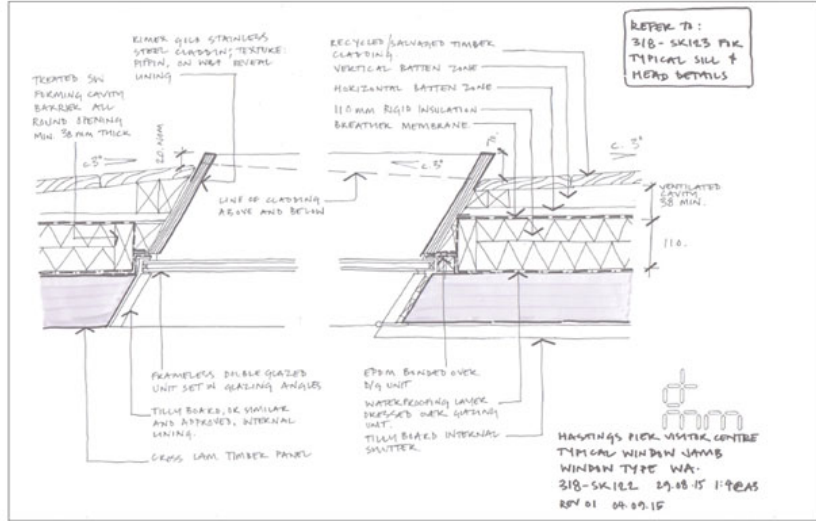 RIMEX GOLD STAINLESS
STEEL CLADDING; TEXTURE:
PIPPIN, ON WBP REVEAL
LINING
TREATED SW
FORMING CAVITY
BARRIER ALL
ROUND OPENING
MIN. 38 MM THICK
20. NOM
C3°
LINE OF CLADDING
ABOVE AND BELOW
RECYCLED/SALVAGED TIMBER
CLADDING
VERTICAL BATTEN ZONE
HORIZONTAL BATTEN ZONE
110 MM RIGID INSULATION
BREATHER MEMBRANE
REFER TO:
318-SK123 FOR
TYPICAL SILL &
HEAD DETAILS
70.
C.3°
C. 3°
VENTILATED
CAVITY
38 MIN.
110.
FRAMELESS DOUBLE GLAZED
UNIT SET IN GLAZING ANGLES
TILLY BOARD, OR SIMILAR
AND APPROVED, INTERNAL
LINING.
CROSS LAM TIMBER PANEL
EPDM BONDED OVER
D/G UNIT
WATERPROOFING LAYER
DRESSED OVER GLAZING
UNIT.
TILLY BOARD INTERNAL
SHUTTER.
dRMM
HASTINGS PIER VISITOR CENTRE
TYPICAL WINDOW JAMB
WINDOW TYPE WA.
318-SK122 29.08.15 1:4@A3
REV 01 04.09.15